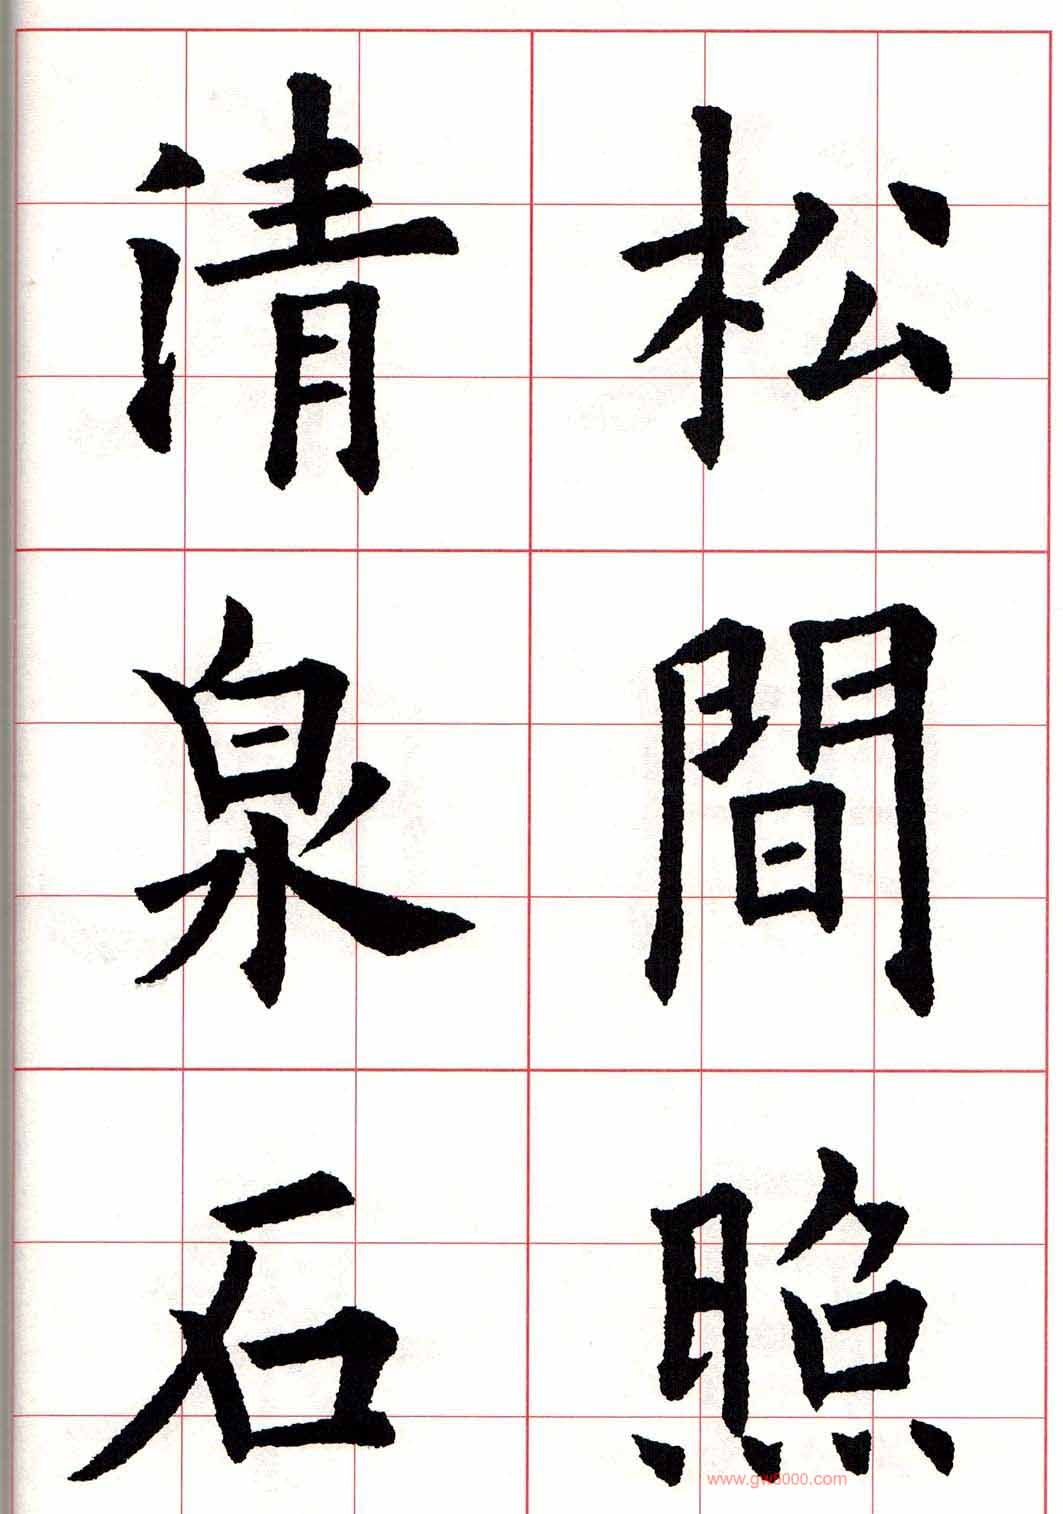 松間照
清泉石
www.gw5000.com